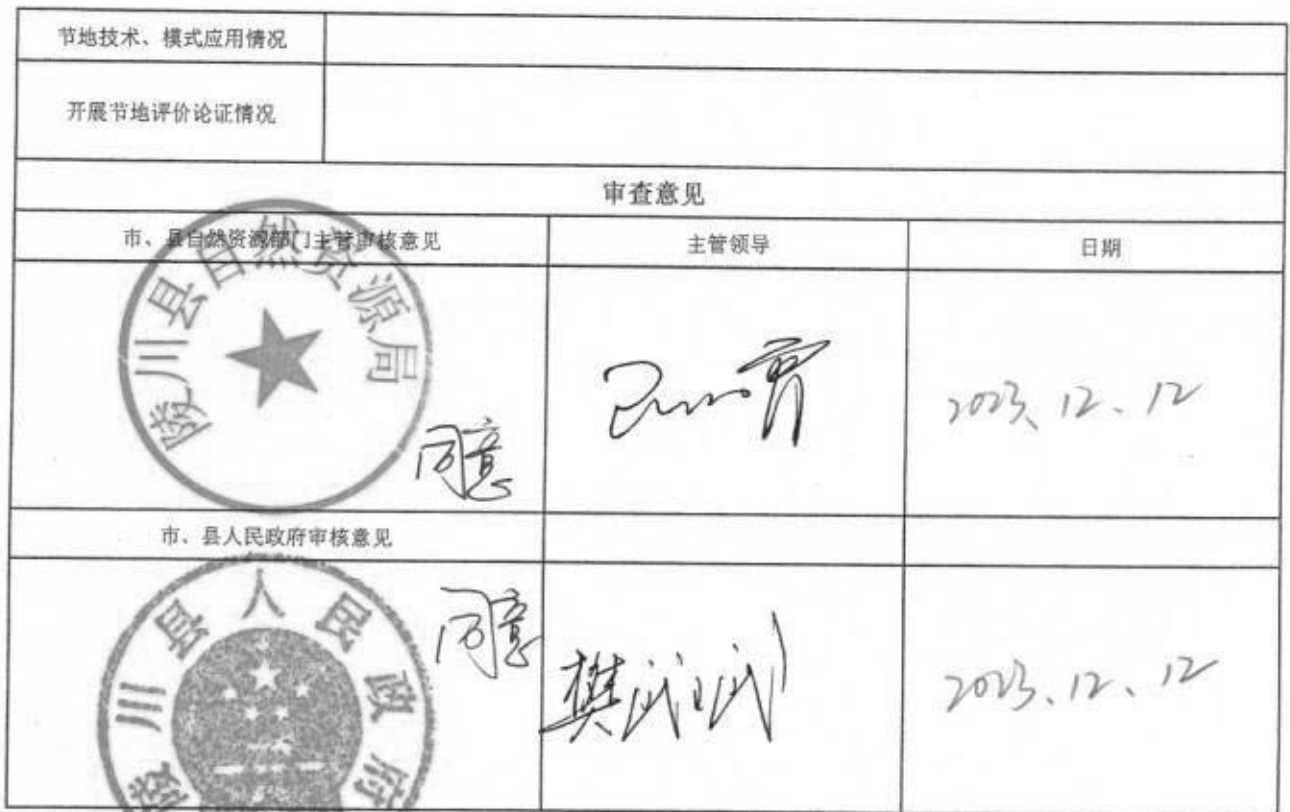 节地技术、模式应用情况
开展节地评价论证情况
审查意见
市、县自然资源部门主管审核意见
主管领导
日期
陵川县自然资源局
同意
2023、12、12
市、县人民政府审核意见
陵川县人民政府
同意
2023、12、12